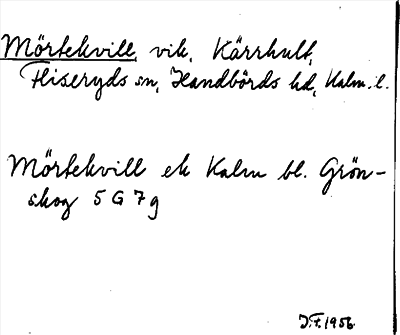 Mörtekvill, vik, Kärrhult,
Fliseryds sn, Handbörds hd, Kalm. l.
Mörtekvill ek Kalm bl. Grön-
skog 5 G 7 g
J.F. 1956